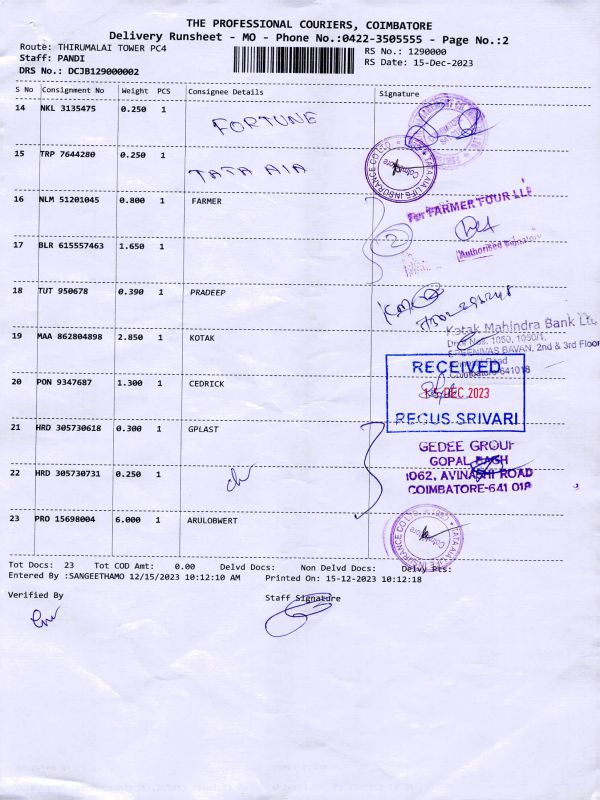 THE PROFESSIONAL COURIERS, COIMBATORE
Delivery Runsheet - MO - Phone No.:0422-3505555 - Page No.:2
Route: THIRUMALAI TOWER PC4
RS No.: 1290000
Staff: PANDI
RS Date: 15-Dec-2023
DRS No.: DCJB129000002
S No Consignment No Weight PCS Consignee Details Signature
14 NKL 3135475 0.250 1 FORTUNE
15 TRP 7644280 0.250 1 TATA AIA
TATA AIA LIFE INSURANCE CO LTD
Coimbatore
16 NLM 51201045 0.800 1 FARMER
For FARMER TOUR LLP
2
17 BLR 615557463 1.650 1
Authorised Signatory
18 TUT 950678 0.390 1 PRADEEP
19 MAA 862804898 2.850 1 KOTAK
Kotak Mahindra Bank Ltd
Door Nos. 1050, 1050/1,
SREENIVAS BAVAN, 2nd & 3rd Floor
Road
Coimbatore 641018
20 PON 9347687 1.300 1 CEDRICK
RECEIVED
15 DEC 2023
REGUS SRIVARI
21 HRD 305730618 0.300 1 GPLAST
GEDEE GROUP
GOPAL BAGH
1062, AVINASHI ROAD
COIMBATORE-641 018
22 HRD 305730731 0.250 1
23 PRO 15698004 6.000 1 ARULOBWERT
TATA AIA LIFE INSURANCE CO LTD
Coimbatore
Tot Docs: 23 Tot COD Amt: 0.00 Delvd Docs: Non Delvd Docs: Delvy Pts:
Entered By :SANGEETHAMO 12/15/2023 10:12:10 AM Printed On: 15-12-2023 10:12:18
Verified By Staff Signature